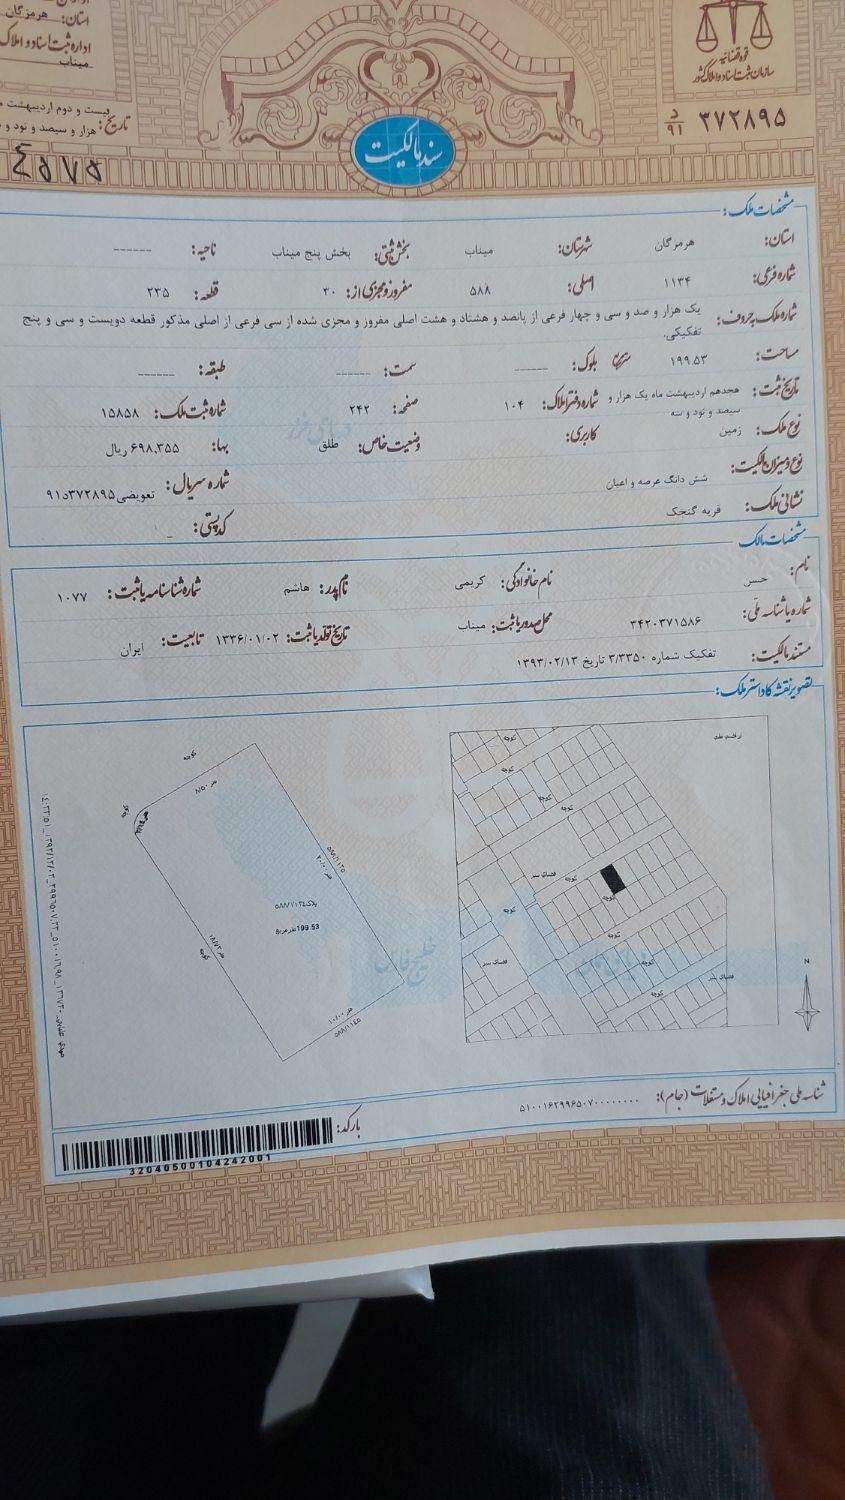 استان: هرمزگان
اداره ثبت اسناد و املاک
میناب
بیست و دوم اردیبهشت
تاریخ: هزار و سیصد و نود و
قوه قضائیه
سازمان ثبت اسناد و املاک کشور
۳۷۲۸۹۵ د ۹۱
سند مالکیت
مشخصات ملک:
استان: هرمزگان شهرستان: میناب بخش ثبتی: بخش پنج میناب ناحیه: ------
شماره فرعی: ۱۱۳۴ اصلی: ۵۸۸ مفروز و مجزی از: ۳۰ قطعه: ۲۳۵
شماره ملک به حروف: یک هزار و صد و سی و چهار فرعی از پانصد و هشتاد و هشت اصلی مفروز و مجزی شده از سی فرعی از اصلی مذکور قطعه دویست و سی و پنج
تفکیکی.
مساحت: ۱۹۹.۵۳ بلوک: ------ سمت: ------ طبقه: ------
تاریخ ثبت: هجدهم اردیبهشت ماه یک هزار و سیصد و نود و سه شماره دفتر املاک: ۱۰۴ صفحه: ۲۴۲ شماره ثبت ملک: ۱۵۸۵۸
نوع ملک: زمین کاربری: وضعیت خاص: طلق بها: ۶۹۸,۳۵۵ ریال
نوع و میزان مالکیت: شش دانگ عرصه و اعیان شماره سریال: تعویضی ۳۷۲۸۹۵د۹۱
نشانی ملک: قریه گنجک کد پستی: _
مشخصات مالک
نام: حسن نام خانوادگی: کریمی نام پدر: هاشم شماره شناسنامه یا ثبت: ۱۰۷۷
شماره یا شناسه ملی: ۳۴۲۰۳۷۱۵۸۶ محل صدور یا ثبت: میناب تاریخ تولد یا ثبت: ۱۳۳۶/۰۱/۰۲ تابعیت: ایران
مستند مالکیت: تفکیک شماره ۳/۳۳۵۰ تاریخ ۱۳۹۳/۰۲/۱۳
تصویر نقشه کاداستر ملک:
اراضی ملی
کوچه
کوچه
کوچه
کوچه
فضای سبز
کوچه
کوچه
کوچه
کوچه
فضای سبز
کوچه
فضای سبز
کوچه
N
کوچه
۸/۵۰ متر
کوچه
۵۸۸/۱۱۳۵
۲۰/۰۰ متر
پلاک ۵۸۸/۱۱۳۴
199.53 مترمربع
۱۸/۷۳ متر
کوچه
۱۰/۰۰ متر
۵۸۸/۱۱۴۵
خلیج فارس
شناسه ملی جغرافیایی املاک و مستغلات (جام): ۵۱۰۰۱۶۲۹۹۶۵۰۷۰۰۰۰۰۰۰۰
بارکد:
32040500104242001